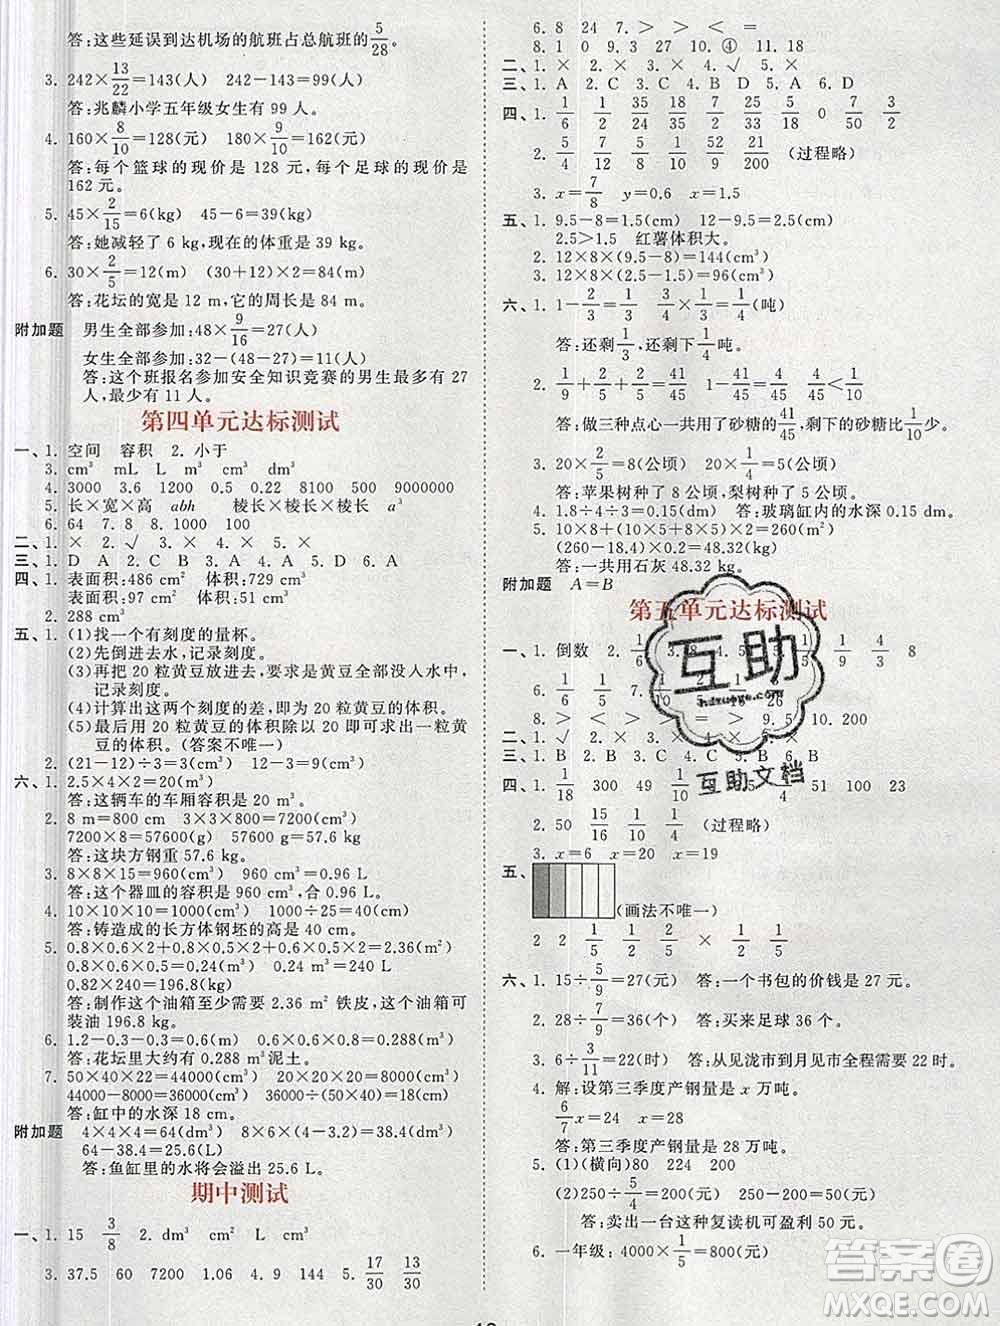 答:这些延误到达机场的航班占总航班的5/28。
3. 242×13/22=143(人) 242-143=99(人)
答:兆麟小学五年级女生有 99 人。
4. 160×8/10=128(元) 180×9/10=162(元)
答:每个篮球的现价是 128 元,每个足球的现价是
162 元。
5. 45×2/15=6(kg) 45-6=39(kg)
答:她减轻了 6 kg,现在的体重是 39 kg。
6. 30×2/5=12(m) (30+12)×2=84(m)
答:花坛的宽是 12 m,它的周长是 84 m。
附加题 男生全部参加:48×9/16=27(人)
女生全部参加:32-(48-27)=11(人)
答:这个班报名参加安全知识竞赛的男生最多有 27
人,最少有 11 人。
第四单元达标测试
一、1. 空间 容积 2. 小于
3. cm³ mL L m³ dm³
4. 3000 3.6 1200 0.5 0.22 8100 500 9000000
5. 长×宽×高 abh 棱长×棱长×棱长 a³
6. 64 7. 8 8. 1000 100
二、1. × 2. √ 3. × 4. × 5. ×
三、1. D A 2. C 3. A 4. A 5. A
四、1. 表面积:486 cm² 体积:729 cm³
表面积:97 cm² 体积:60 cm³
2. 288 cm³
五、1. (1)找一个有刻度的量杯。
(2)先倒进去水,记录刻度。
(3)再把 20 粒黄豆放进去,要求是黄豆全部没入水中,
记录刻度。
(4)计算出这两个刻度的差,即为 20 粒黄豆的体积。
(5)最后用 20 粒黄豆的体积除以 20 即可求出一粒黄
豆的体积。(答案不唯一)
2. (21-12)÷3=3(cm³) 12-3=9(cm³)
六、1. 2.5×4×2=20(m³)
答:这辆车的车厢容积是 20 m³。
2. 8 m=800 cm 3×3×800=7200(cm³)
7200×8=57600(g) 57600 g=57.6 kg
答:这块方钢重 57.6 kg。
3. 8×8×15=960(cm³) 960 cm³=0.96 L
答:这个器皿的容积是 960 cm³,合 0.96 L。
4. 10×10×10=1000(cm³) 1000÷25=40(cm)
答:铸造成的长方体钢坯的高是 40 cm。
5. 0.8×0.6×2+0.8×0.5×2+0.6×0.5×2=2.36(m²)
0.8×0.6×0.5=0.24(m³) 0.24 m³=240 L
0.82×240=196.8(kg)
答:制作这个油箱至少需要 2.36 m² 铁皮,这个油箱可
装油 196.8 kg。
6. 1.2-0.3-0.3=0.6(m) 0.6×0.6×0.8=0.288(m³)
答:花坛里大约有 0.288 m³泥土。
7. 50×40×22=44000(cm³) 20×20×20=8000(cm³)
44000-8000=36000(cm³) 36000÷(50×40)=18(cm)
答:缸中的水深 18 cm。
附加题 4×4×4=64(dm³) 8×6×(4-3.2)=38.4(dm³)
64-38.4=25.6(L)
答:鱼缸里的水将会溢出 25.6 L。
期中测试
一、1. 15 3/8 2. dm³ cm² L cm³
3. 37.5 60 7200 1.06 4. 9 144 5. 17/30 13/30
6. 8 24 7. > > < =
8. 1 0 9. 3 27 10. ④ 11. B
二、1. × 2. × 3. × 4. √ 5. ×
三、1. A 2. C 3. C 4. D 5. A 6. D
四、1. 1/6 1/2 35/24 18/35 7/18 5/12 0 7/50 3/2
2. 5/4 7/12 5/8 1/4 52/29 21/200 (过程略)
3. x=7/8 y=0.6 x=1.5
五、1. 9.5-8=1.5(cm) 12-9.5=2.5(cm)
2.5>1.5 红薯体积大。
2. 12×8×(9.5-8)=144(cm³)
3. 12×8×(2.5-1.5)=96(cm³)
六、1. 1-2/3=1/3 3/4×1/3=1/4(吨)
答:还剩1/3,还剩下1/4吨。
2. 1/9+2/5+2/5=41/45 41/45÷1=41/45 1-9/10=1/10
答:三种点心一共用了砂糖的41/45,剩下的砂糖比1/10少。
3. 20×2/5=8(公顷) 20×1/4=5(公顷)
答:苹果树种了 8 公顷,梨树种了 5 公顷。
4. 1.8÷4÷3=0.15(dm) 答:玻璃缸内的水深 0.15 dm.
5. 10×8+(10×5+8×5)×2=260(m²)
(260-18.4)×0.2=48.32(kg)
答:一共用石灰 48.32 kg。
附加题 A=B
第五单元达标测试
一、1. 倒数 2. 1/6
8
二、1. √ 2. ×
三、1. B 2. B 3. C 4. C 5. B 6. B
四、1. 1/18 300 49 100 23
2. 50 15/16 1/10 1/4 (过程略)
3. x=6 x=20 x=19
五、
(画法不唯一)
2 2 1/2 1/5 2/5 × 1/2 1/5
六、1. 15÷5/9=27(元) 答:一个书包的价钱是 27 元。
2. 28÷7/9=36(个) 答:买来足球 36 个。
3. 6÷3/11=22(时) 答:从见泷市到月见市全程需要 22 时。
4. 解:设第三季度产钢量是 x 万吨。
6/7x=24 x=28
答:第三季度产钢量是 28 万吨。
5. (1)(横向)80 224 200
(2)250÷5/4=200(元) 250-200=50(元)
答:卖出一台这种复读机可盈利 50 元。
6. 一年级:4000×1/5=800(元)
互助
互助文档
答案圈
MXQE.COM